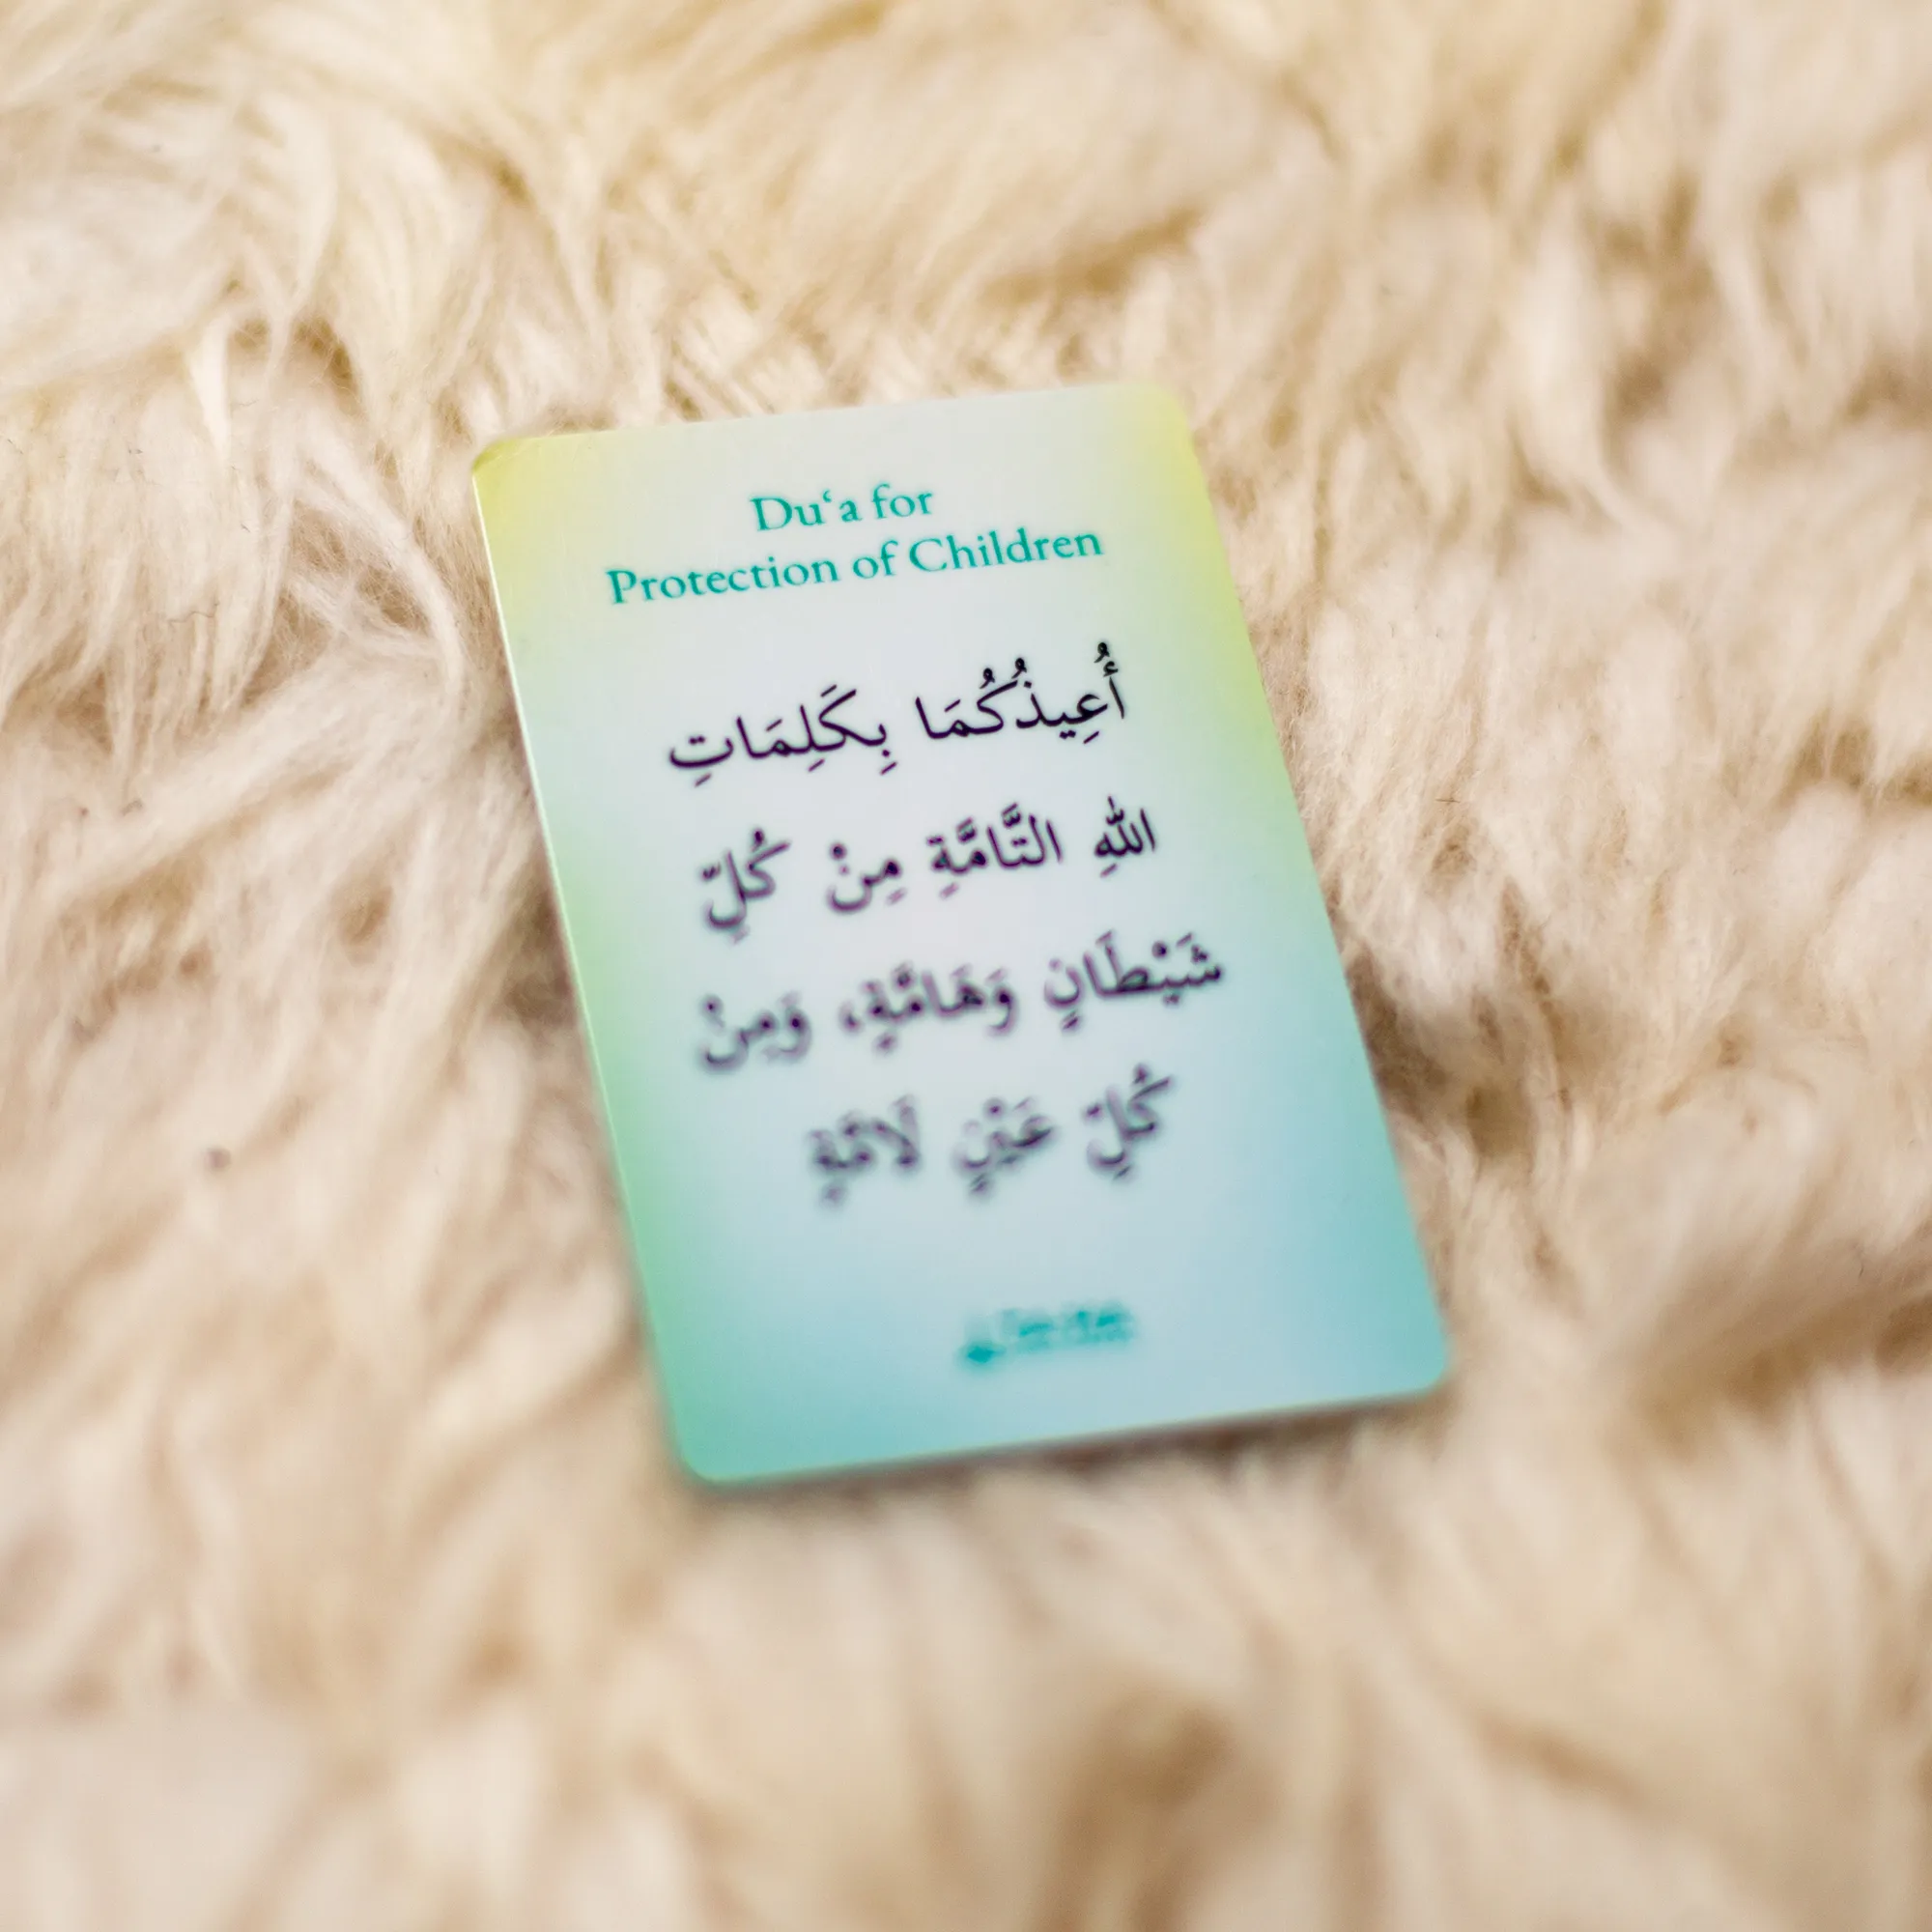 Du‘a for
Protection of Children
أُعِيذُكُمَا بِكَلِمَاتِ
اللهِ التَّامَّةِ مِنْ كُلِّ
شَيْطَانٍ وَهَامَّةٍ، وَمِنْ
كُلِّ عَيْنٍ لَامَّةٍ